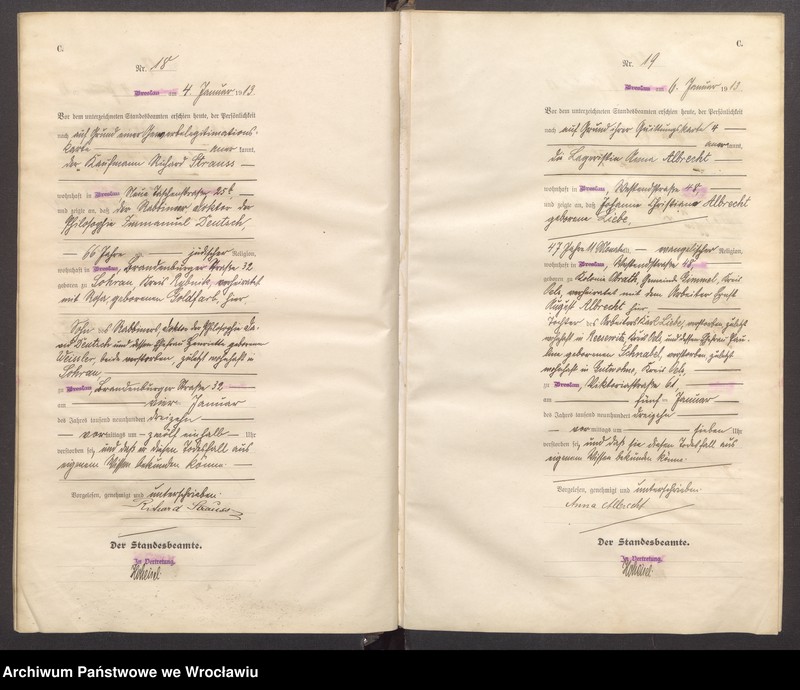 C.
Nr. 18
Breslau am 4. Januar 1913.
Vor dem unterzeichneten Standesbeamten erschien heute, der Persönlichkeit
nach auf Grund einer Gewerbelegitimations-
karte anerkannt,
der Kaufmann Richard Strauss
wohnhaft in Breslau, Neue Taschenstraße 25b
und zeigte an, daß der Rabbiner Doktor der
Philosophie Immanuel Deutsch,
66 Jahre jüdischer Religion,
wohnhaft in Breslau, Brandenburger Straße 32
geboren zu Sohrau, Kreis Rybnik, verheiratet
mit Rosa geborenen Goldfarb, hier,
Sohn des Rabbiners, Doktor der Philosophie Da-
vid Deutsch und dessen Ehefrau Henriette geborenen
beide verstorben, zuletzt wohnhaft in
Sohrau
zu Breslau, Brandenburger Straße 32
am vier Januar
des Jahres tausend neunhundert dreizehn
vormittags um zwölf einhalb Uhr
verstorben sei, und daß er diesen Todesfall aus
eigenem Wissen bekunden könne.
Vorgelesen, genehmigt und unterschrieben.
Richard Strauss
Der Standesbeamte.
In Vertretung.
C.
Nr. 19
Breslau am 6. Januar 1913.
Vor dem unterzeichneten Standesbeamten erschien heute, der Persönlichkeit
nach auf Grund ihrer Quittungskarte 4
anerkannt,
die Lageristin Anna Albrecht
wohnhaft in Breslau, Westendstraße 48,
und zeigte an, daß Johanna Christiane Albrecht
geborene Liebe,
47 Jahre 11 Monate evangelischer Religion,
wohnhaft in Breslau, Westendstraße 48,
geboren zu Kolonie Gemeinde Gimmel, Kreis
Oels, verheiratet mit dem Arbeiter Ernst
August Albrecht hier,
Tochter des Arbeiters Karl Liebe, verstorben, zuletzt
wohnhaft in Kreis Oels, und dessen Ehefrau Pau-
line geborenen Schnabel, verstorben, zuletzt
wohnhaft in Gutwohne, Kreis Oels,
zu Breslau, Viktoriastraße 61,
am fünf Januar
des Jahres tausend neunhundert dreizehn
vormittags um sieben Uhr
verstorben sei, und daß sie diesen Todesfall aus
eigenem Wissen bekunden könne.
Vorgelesen, genehmigt und unterschrieben.
Anna Albrecht
Der Standesbeamte.
In Vertretung.
Archiwum Państwowe we Wrocławiu